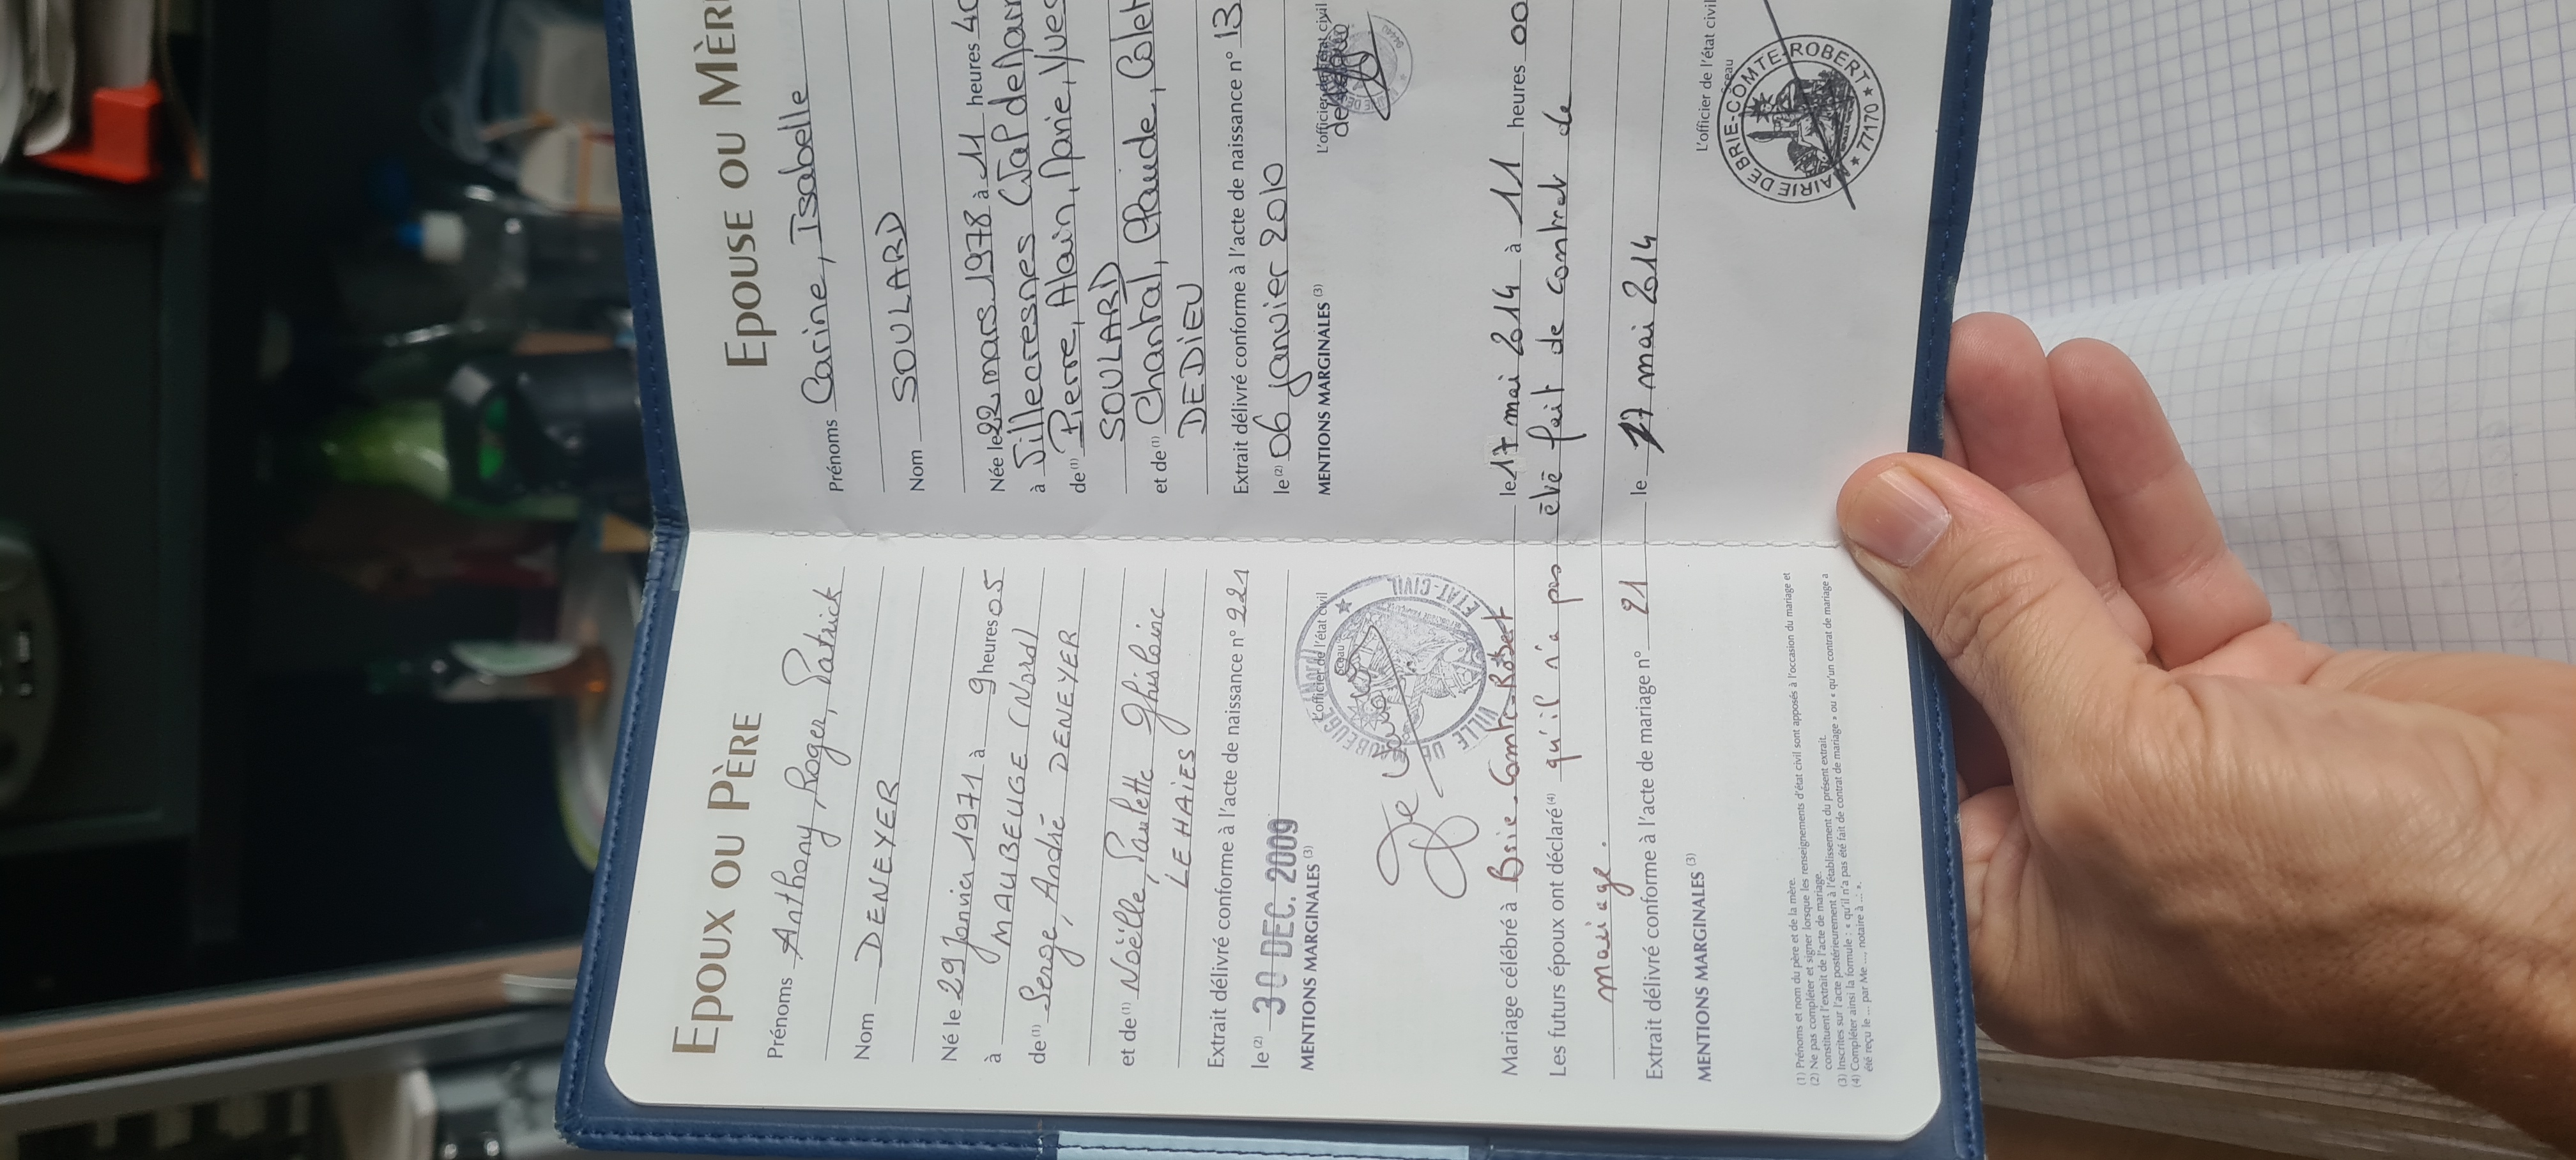 EPOUX OU PÈRE
Prénoms Anthony, Roger, Patrick
Nom DENEYER
Né le 29 Janvier 1971 à 9 heures 05
à MAUBEUGE (Nord)
de (1) Serge, André DENEYER
et de (1) Noëlle, Paulette Ghislaine
LEHAIES
Extrait délivré conforme à l'acte de naissance n° 221
le (2) 30 DEC. 2009
L'officier de l'état civil
Sceau
MENTIONS MARGINALES (3)
VILLE DE
ETAT-CIVIL
EPOUSE OU MÈR
Prénoms Carine, Isabelle
Nom SOULARD
Née le 22 mars 1978 à 11 heures 40
à Villecresnes
Pierre, Alain, Marie, Yves
de (1)
SOULARD
et de (1) Chantal, Claude,
DEDIEU
Extrait délivré conforme à l'acte de naissance n° 13
le (2) 06 janvier 2010
L'officier de l'état civil
MENTIONS MARGINALES (3)
Mariage célébré à Brie-Comte-Robert le 17 mai 2014 à 11 heures 00
Les futurs époux ont déclaré (4) qu'il n'a pas été fait de contrat de
mariage.
Extrait délivré conforme à l'acte de mariage n° 21 le 17 mai 2014
MENTIONS MARGINALES (3)
L'officier de l'état civil
Sceau
MAIRIE DE BRIE-COMTE-ROBERT
★ 77170 ★
(1) Prénoms et nom du père et de la mère.
(2) Ne pas compléter et signer lorsque les renseignements d'état civil sont apposés à l'occasion du mariage et
constituent l'extrait de l'acte de mariage.
(3) Inscrites sur l'acte postérieurement à l'établissement du présent extrait.
(4) Compléter ainsi la formule : « qu'il n'a pas été fait de contrat de mariage » ou « qu'un contrat de mariage a
été reçu le ... par Me ..., notaire à ... ».